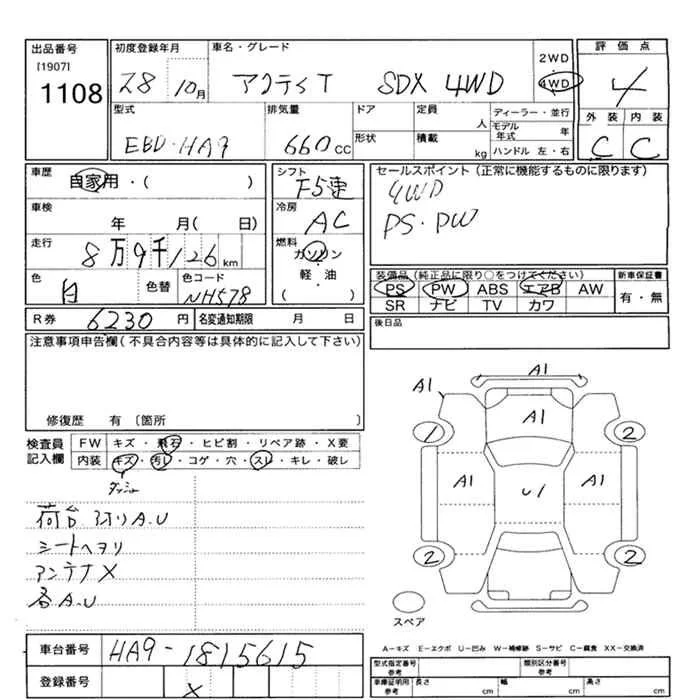 出品番号
[1907]
1108
初度登録年月
28 10月
車名・グレード
アクティT SDX 4WD
2WD
4WD
評価点
4
外装 内装
C C
型式
EBD・HA9
排気量
660 cc
ドア
形状
定員
人
積載
kg
ディーラー・並行
モデル年式 年
ハンドル 左・右
車歴
自家用・( )
車検
年 月( 日)
走行
8万9千126 km
色
白
色替
色コード
NH578
シフト
F5速
冷房
AC
燃料
ガソリン
・
軽・油
( )
セールスポイント(正常に機能するものに限ります)
4WD
PS・PW
装備品(純正品に限り○をつけてください)
PS PW ABS エアB AW
SR ナビ TV カワ
新車保証書
有・無
R券 6230円
名変通知期限 月 日
後日品
注意事項申告欄(不具合内容等は具体的に記入して下さい)
修復歴 有〔箇所 〕
検査員
記入欄
FW キズ・飛石・ヒビ割・リペア跡・X要
内装 キズ・汚レ・コゲ・穴・スレ・キレ・破レ
ダッシュ
荷台 アオリA.U
シートヘタリ
アンテナX
各A.U
A1
A1
A1
1
2
A1
U1
A1
2
2
スペア
A-キズ E-エクボ U-凹み W-補修跡 S-サビ C-腐食 XX-交換済
車台番号
HA9-1815615
登録番号
X
型式指定番号
参考
類別区分番号
参考
車庫証明用
参考
長さ cm
幅 cm
高さ cm